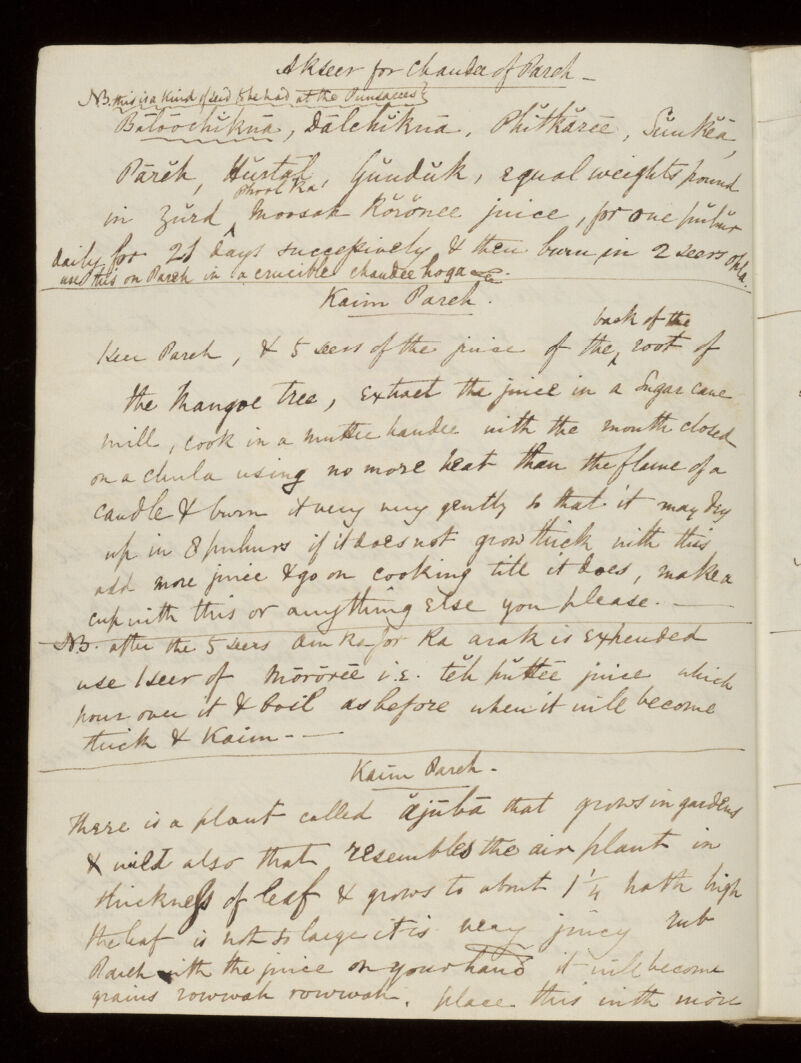 Akseer for Chandee of Pareh -
NB. this is a kind of seed to be had at the Punsarees
Bălōōchĭkna, Dālchĭkna, Phĭtkăree, Sŭnkĕa,
Pārĕh, Hŭrtal, Gŭndŭk, equal weights pound
in Zŭrd Phool Ka Moosah Kŏrōnee juice, for one puhŭr
daily for 21 days successively & then burn in 2 seers Opla.
use this on Pareh in a crucible chandee hoga
Kaim Pareh.
1 seer Pareh, & 5 seers of the juice of the bark of the root of
the Mangoe tree, Extract the juice in a Sugar cane
mill, cook in a muttee handee with the mouth closed
on a chula using no more heat than the flame of a
candle & burn it very very gently so that it may dry
up in 8 puhurs if it does not grow thick with this
add more juice & go on cooking till it does, make a
cup with this or anything Else you please. -
NB. after the 5 seers Am ka jor ka arak is Expended
use 1 seer of Mŏrŏrēē i.e. tĕh puttēē juice which
pour over it & boil as before when it will become
thick & Kaim - -
Kaim Pareh -
There is a plant called ăjŭba that grows in gardens
& wild also that resembles the air plant in
thickness of leaf & grows to about 1 1/4 hath high
the leaf is not so large it is very juicy rub
Pareh with the juice on your hand it will become
grains rowwah rowwah. place this with more